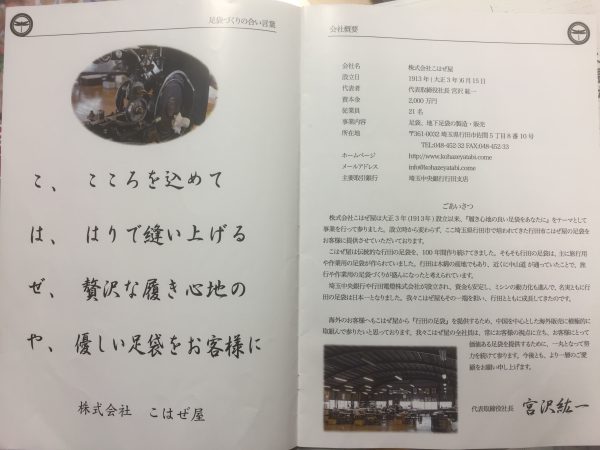 足袋づくりの合い言葉
こ、 こころを込めて
は、 はりで縫い上げる
ぜ、 贅沢な履き心地の
や、 優しい足袋をお客様に
株式会社 こはぜ屋
会社概要
会社名 株式会社こはぜ屋
設立日 1913年(大正3年)6月15日
代表者 代表取締役社長 宮沢紘一
資本金 2,000万円
従業員 21名
事業内容 足袋、地下足袋の製造・販売
所在地 〒361-0032 埼玉県行田市佐間5丁目8番10号
TEL:048-452-33 FAX:048-452-33
ホームページ http://www.kohazeyatabi.come
メールアドレス info@kohazeyatabi.come
主要取引銀行 埼玉中央銀行行田支店
ごあいさつ
株式会社こはぜ屋は大正3年(1913年)設立以来、『履き心地の良い足袋をあなたに』をテーマとして
事業を行って参りました。設立時から変わらず、ここ埼玉県行田市で培われてきた行田市こはぜ屋の足袋を
お客様に提供させていただいております。
こはぜ屋は伝統的な行田の足袋を、100年間作り続けてきました。そもそも行田の足袋は、主に旅行用
や作業用の足袋が作られていました。行田は木綿の産地でもあり、近くに中山道が通っていたことで、旅
行や作業用の足袋づくりが盛んになったと考えられています。
埼玉中央銀行や行田電燈株式会社が設立され、資金も安定し、ミシンの動力化も進んで、名実ともに行
田の足袋は日本一となりました。我々こはぜ屋もその一端を担い、行田とともに成長してきたのです。
海外のお客様へもこはぜ屋から『行田の足袋』を提供するため、中国を中心とした海外販売に積極的に
取組んで参りたいと思っております。我々こはぜ屋の全社員は、常にお客様の視点に立ち、お客様にとって
価値ある足袋を提供するために、一丸となって努
力を続けて参ります。今後とも、より一層のご愛
顧をお願い申し上げます。
代表取締役社長 宮沢紘一